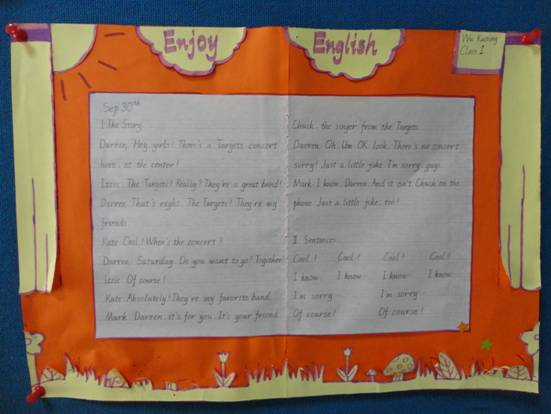 Enjoy
English
Wu
Class 1
Sep 30th
I The Story.
Darren. Hey, girls! There's a Targets concert
here, at the center!
Izzie. The Targets! Really? They're a great band!
Darren. That's right. The Targets! They're my
friends
Kate. Cool! When's the concert?
Darren. Saturday. Do you want to go? Together!
Izzie. Of course!
Kate. Absolutely! They're my favorite band.
Mark. Darren, it's for you. It's your friend
Chuck. the singer from the Targets.
Darren. Oh. Um. OK. look. There's no concert.
sorry! Just a little joke. I'm sorry. guys.
Mark. I know. Darren. And it isn't Chuck on the
phone. Just a little joke, too!
II Sentences
Cool! Cool! Cool! Cool!
I know I know I know I know
I'm sorry I'm sorry
Of course! Of course!